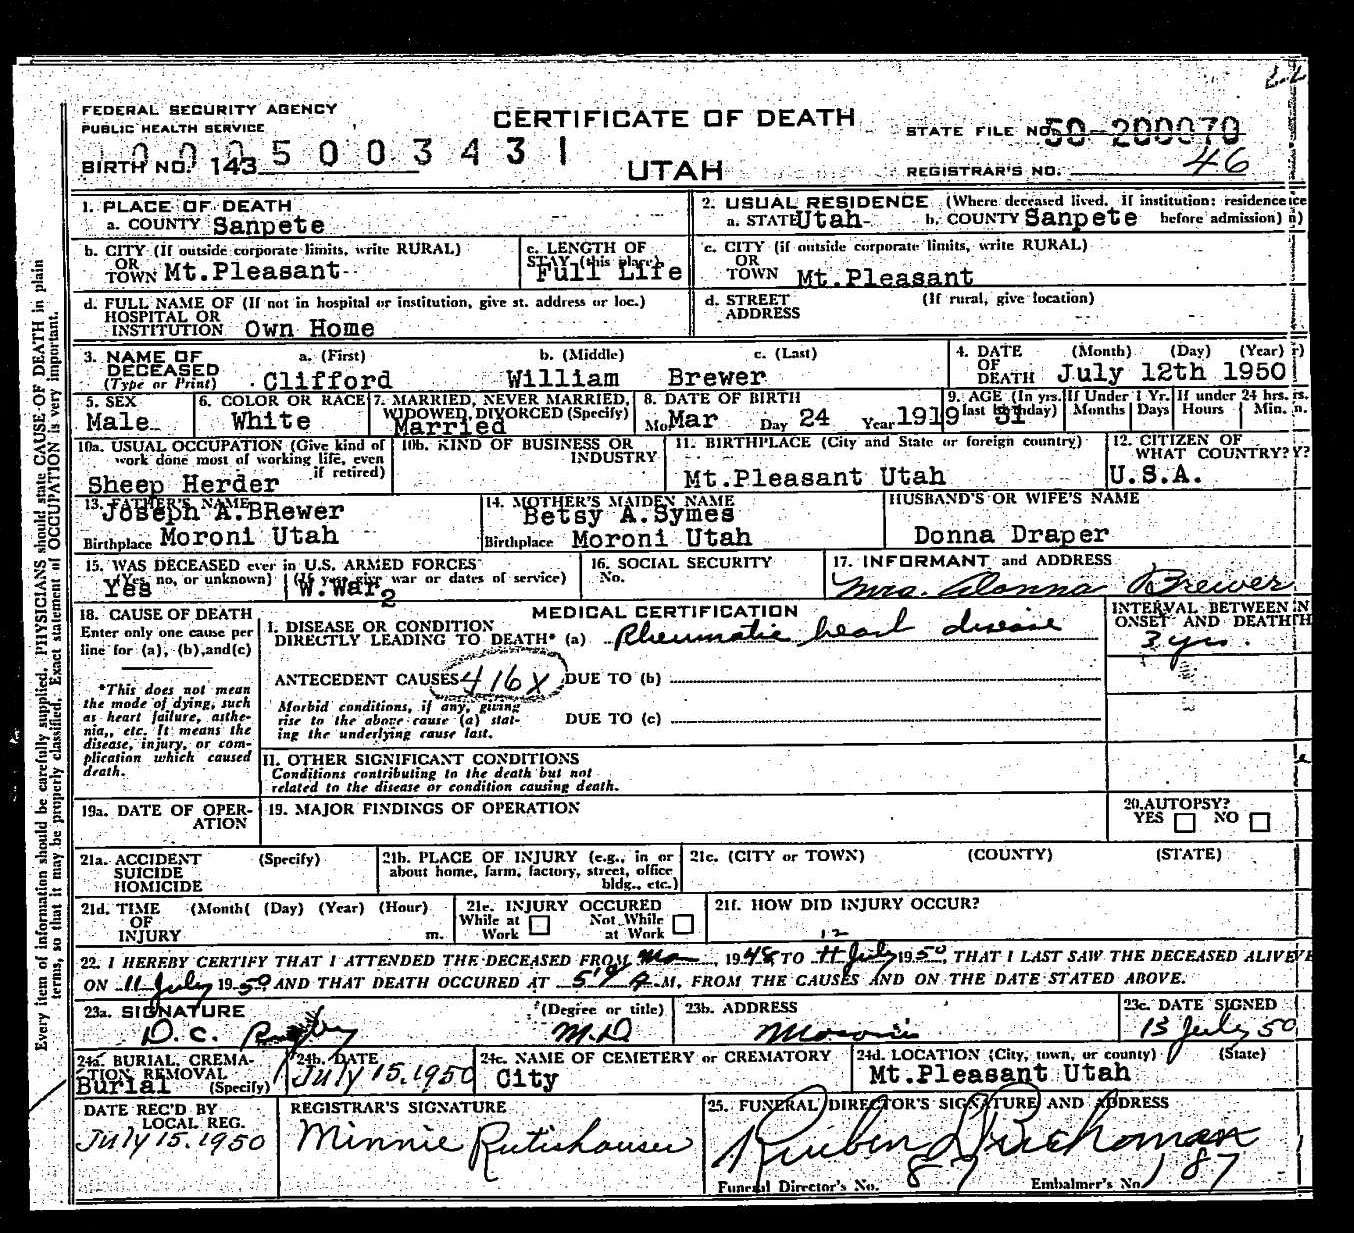 FEDERAL SECURITY AGENCY
PUBLIC HEALTH SERVICE
CERTIFICATE OF DEATH
STATE FILE NO. 50-200070
BIRTH NO. 143
0005003431
UTAH
REGISTRAR'S NO. 46
1. PLACE OF DEATH
a. COUNTY Sanpete
2. USUAL RESIDENCE (Where deceased lived. If institution: residence before admission)
a. STATE Utah b. COUNTY Sanpete
b. CITY (If outside corporate limits, write RURAL)
OR
TOWN Mt.Pleasant
c. LENGTH OF
STAY (this place)
Full Life
c. CITY (if outside corporate limits, write RURAL)
OR
TOWN Mt.Pleasant
d. FULL NAME OF (If not in hospital or institution, give st. address or loc.)
HOSPITAL OR
INSTITUTION Own Home
d. STREET (If rural, give location)
ADDRESS
3. NAME OF DECEASED (Type or Print)
a. (First) b. (Middle) c. (Last)
Clifford William Brewer
4. DATE OF DEATH (Month) (Day) (Year)
July 12th 1950
5. SEX
Male
6. COLOR OR RACE
White
7. MARRIED, NEVER MARRIED,
WIDOWED, DIVORCED (Specify)
Married
8. DATE OF BIRTH
Mo Mar Day 24 Year 1919
9. AGE (In yrs. last birthday) 31
If Under 1 Yr. Months Days
If under 24 hrs. Hours Min.
10a. USUAL OCCUPATION (Give kind of
work done most of working life, even
if retired)
Sheep Herder
10b. KIND OF BUSINESS OR
INDUSTRY
11. BIRTHPLACE (City and State or foreign country)
Mt.Pleasant Utah
12. CITIZEN OF
WHAT COUNTRY?
U.S.A.
13. FATHER'S NAME
Joseph A.BRewer
Birthplace Moroni Utah
14. MOTHER'S MAIDEN NAME
Betsy A.Symes
Birthplace Moroni Utah
HUSBAND'S OR WIFE'S NAME
Donna Draper
15. WAS DECEASED ever in U.S. ARMED FORCES
(Yes, no, or unknown) (If yes, give war or dates of service)
Yes W.War2
16. SOCIAL SECURITY
No.
17. INFORMANT and ADDRESS
Mrs. Donna Brewer
18. CAUSE OF DEATH
Enter only one cause per
line for (a), (b), and(c)
*This does not mean
the mode of dying, such
as heart failure, asthe-
nia,, etc. It means the
disease, injury, or com-
plication which caused
death.
MEDICAL CERTIFICATION
I. DISEASE OR CONDITION
DIRECTLY LEADING TO DEATH* (a) Rheumatic heart disease
INTERVAL BETWEEN
ONSET AND DEATH
3 yrs.
ANTECEDENT CAUSES 416X DUE TO (b)
Morbid conditions, if any, giving
rise to the above cause (a) stat-
ing the underlying cause last.
DUE TO (c)
II. OTHER SIGNIFICANT CONDITIONS
Conditions contributing to the death but not
related to the disease or condition causing death.
19a. DATE OF OPER-
ATION
19. MAJOR FINDINGS OF OPERATION
20. AUTOPSY?
YES NO
21a. ACCIDENT (Specify)
SUICIDE
HOMICIDE
21b. PLACE OF INJURY (e.g., in or
about home, farm, factory, street, office
bldg., etc.)
21c. (CITY or TOWN) (COUNTY) (STATE)
21d. TIME (Month( (Day) (Year) (Hour)
OF
INJURY m.
21e. INJURY OCCURED
While at Work Not While at Work
21f. HOW DID INJURY OCCUR?
12
22. I HEREBY CERTIFY THAT I ATTENDED THE DECEASED FROM 1948 TO 11 July 1950, THAT I LAST SAW THE DECEASED ALIVE
ON 11 July 1950 AND THAT DEATH OCCURED AT A.M, FROM THE CAUSES AND ON THE DATE STATED ABOVE.
23a. SIGNATURE (Degree or title)
D.C. M.D
23b. ADDRESS
Moroni
23c. DATE SIGNED
13 July 50
24a. BURIAL, CREMA-
TION REMOVAL
Burial (Specify)
24b. DATE
July 15.1950
24c. NAME OF CEMETERY or CREMATORY
City
24d. LOCATION (City, town, or county) (State)
Mt.Pleasant Utah
DATE REC'D BY
LOCAL REG.
July 15.1950
REGISTRAR'S SIGNATURE
Minnie Rutishauser
25. FUNERAL DIRECTOR'S SIGNATURE AND ADDRESS
Funeral Director's No. 87 Embalmer's No. 187
Every item of information should be carefully supplied. PHYSICIANS should state CAUSE OF DEATH in plain
terms, so that it may be properly classified. Exact statement of OCCUPATION is very important.